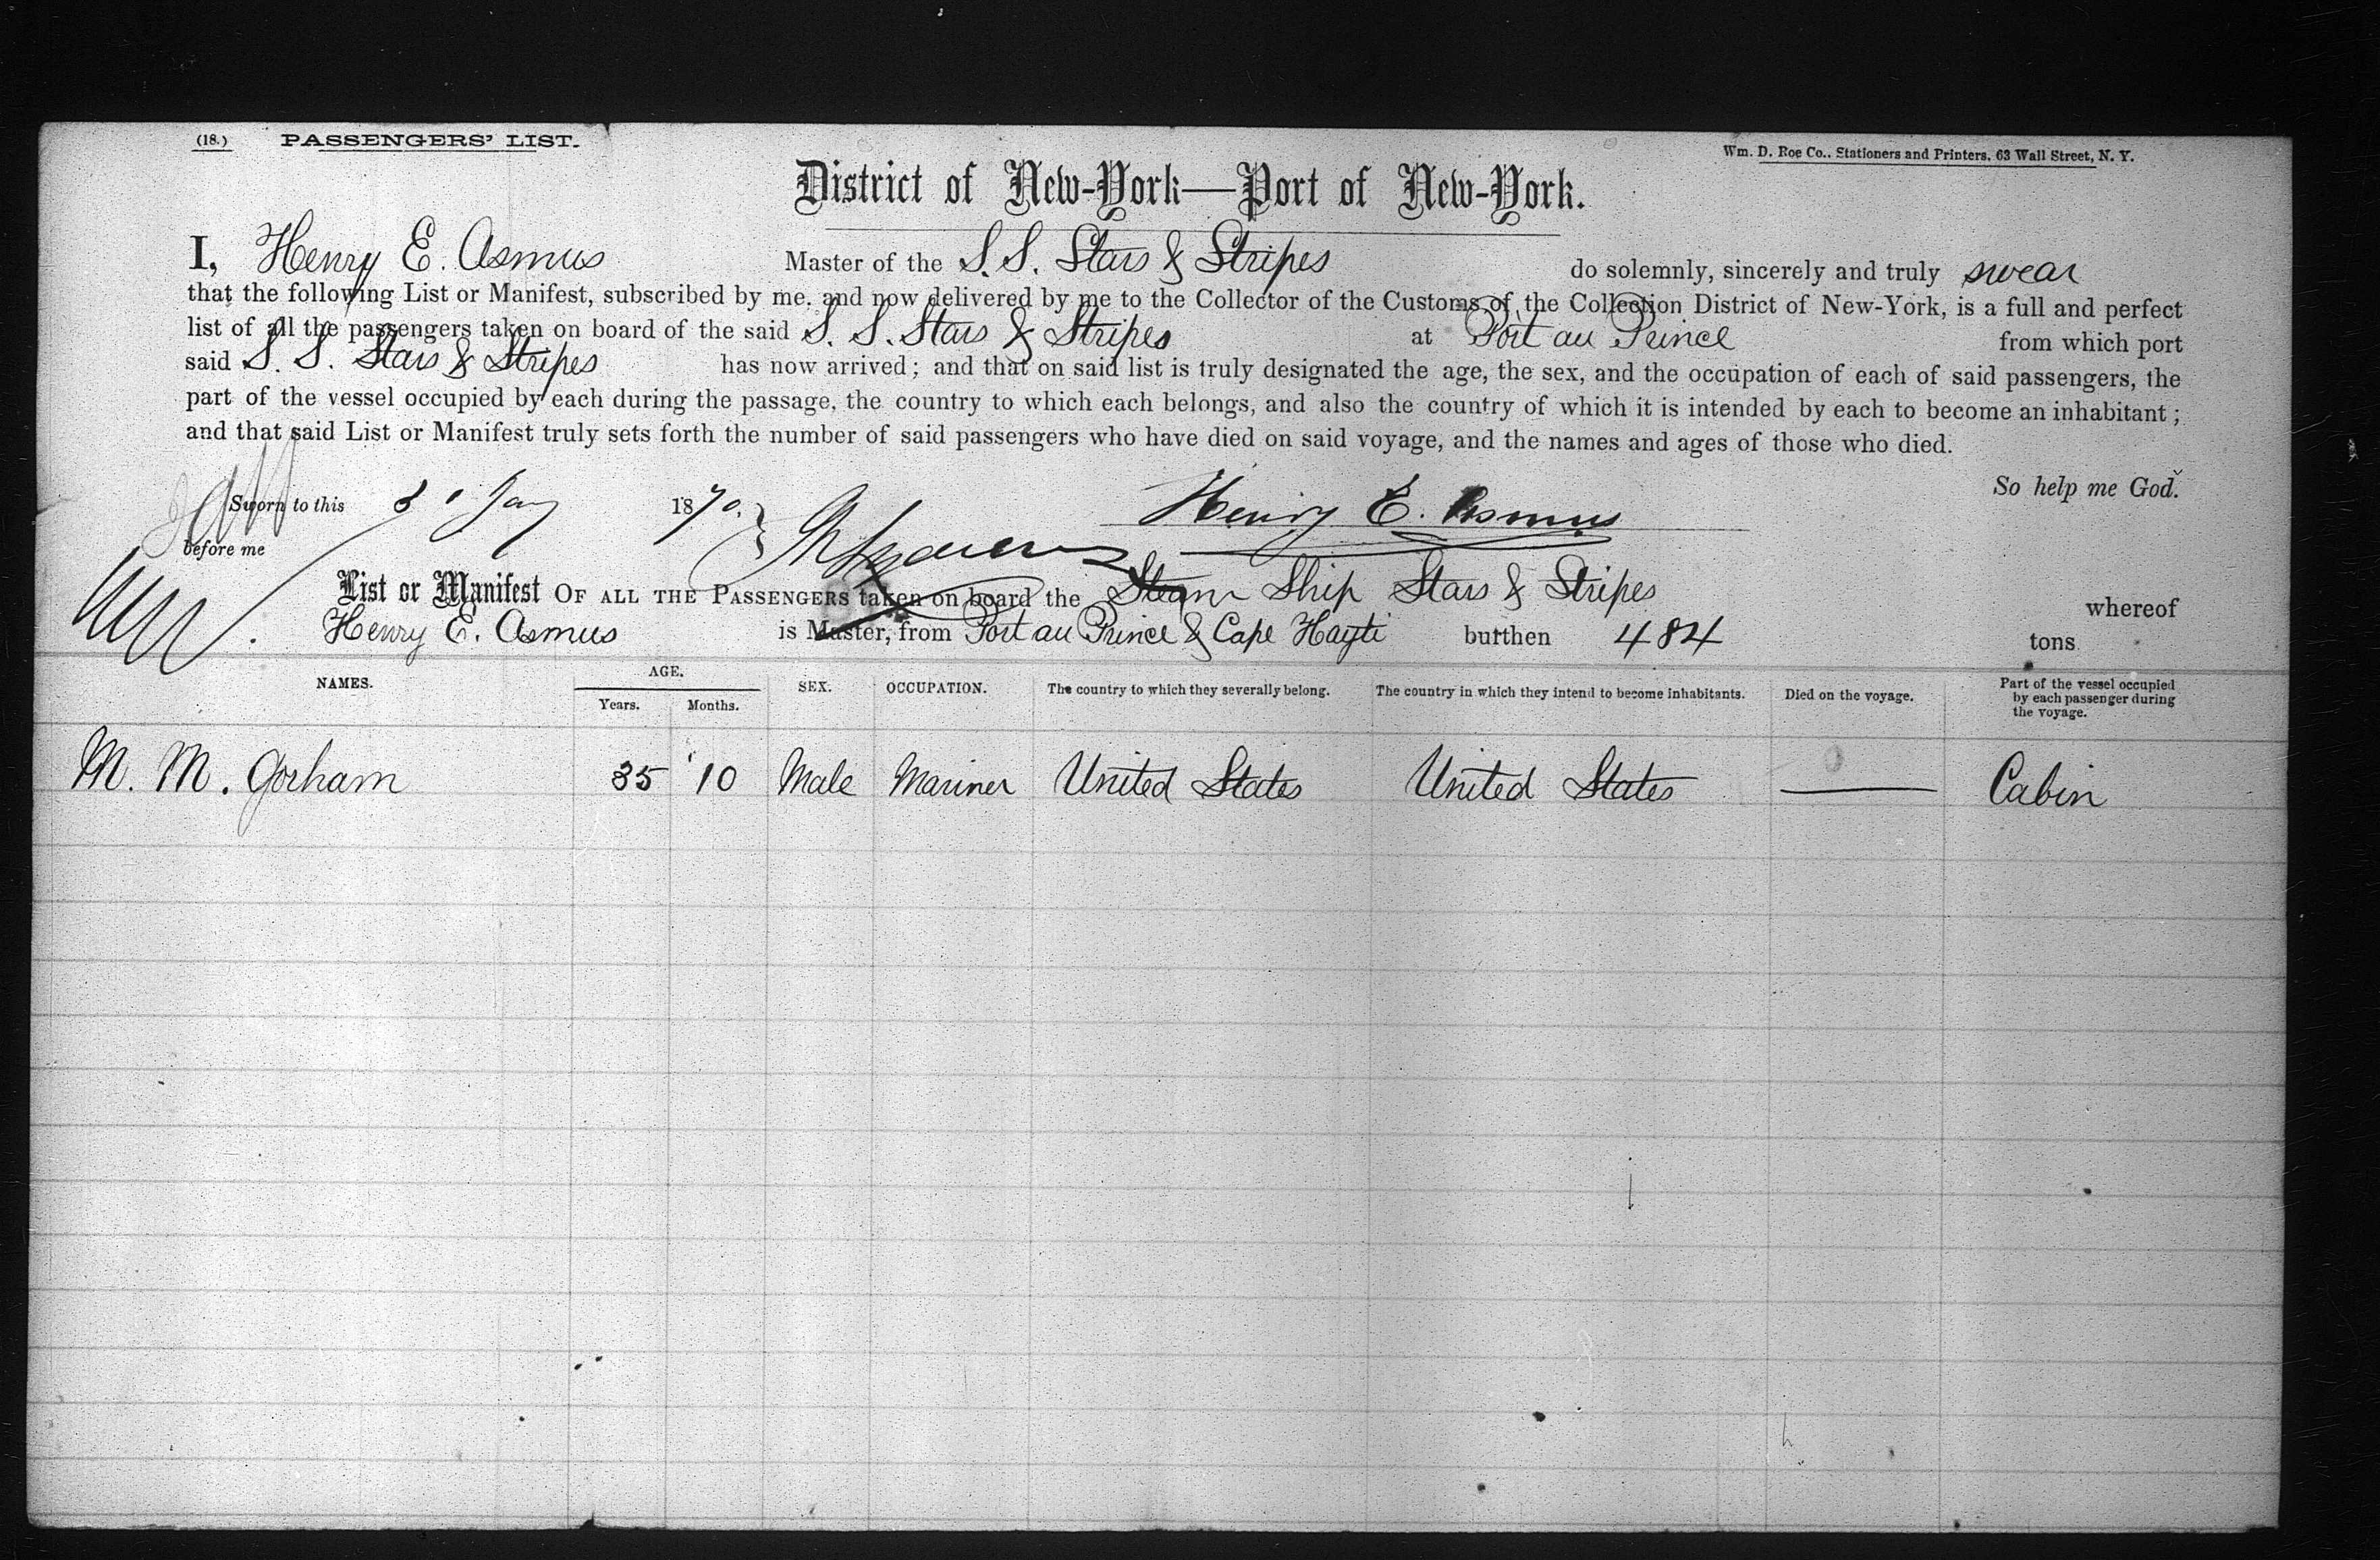 (18.) PASSENGERS' LIST.
Wm. D. Roe Co., Stationers and Printers, 63 Wall Street, N. Y.
District of New-York—Port of New-York.
I, Henry E. Asmus Master of the S. S. Stars & Stripes do solemnly, sincerely and truly swear
that the following List or Manifest, subscribed by me, and now delivered by me to the Collector of the Customs of the Collection District of New-York, is a full and perfect
list of all the passengers taken on board of the said S. S. Stars & Stripes at Port au Prince from which port
said S. S. Stars & Stripes has now arrived; and that on said list is truly designated the age, the sex, and the occupation of each of said passengers, the
part of the vessel occupied by each during the passage, the country to which each belongs, and also the country of which it is intended by each to become an inhabitant;
and that said List or Manifest truly sets forth the number of said passengers who have died on said voyage, and the names and ages of those who died.
So help me God.
Sworn to this Jany 1870. Henry E. Asmus
before me
List or Manifest OF ALL THE PASSENGERS taken on board the Steam Ship Stars & Stripes whereof
Henry E. Asmus is Master, from Port au Prince & Cape Hayti burthen 484 tons
NAMES. AGE. Years. Months. SEX. OCCUPATION. The country to which they severally belong. The country in which they intend to become inhabitants. Died on the voyage. Part of the vessel occupied by each passenger during the voyage.
M. M. Gorham 35 10 Male Mariner United States United States — Cabin